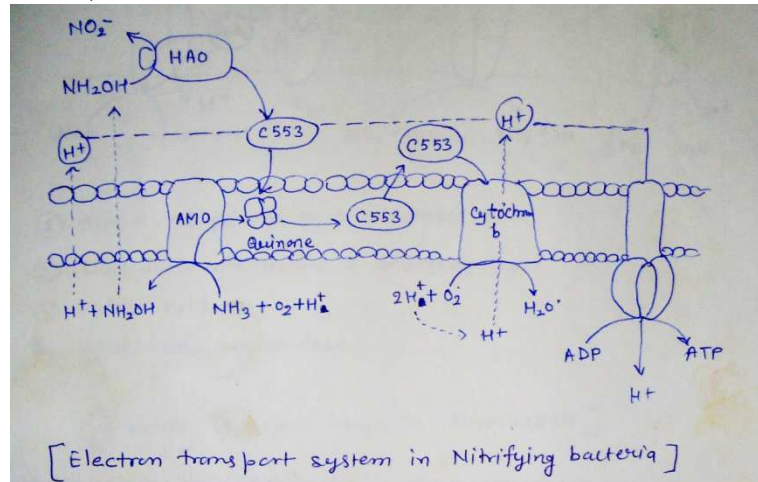 NO₂⁻
HAO
NH₂OH
H⁺
C553
C553
H⁺
AMO
Quinone
C553
Cytochrom
b
H⁺ + NH₂OH
NH₃ + O₂ + H⁺
2H⁺ + O₂
H₂O
H⁺
ADP
ATP
H⁺
[Electron transport system in Nitrifying bacteria]